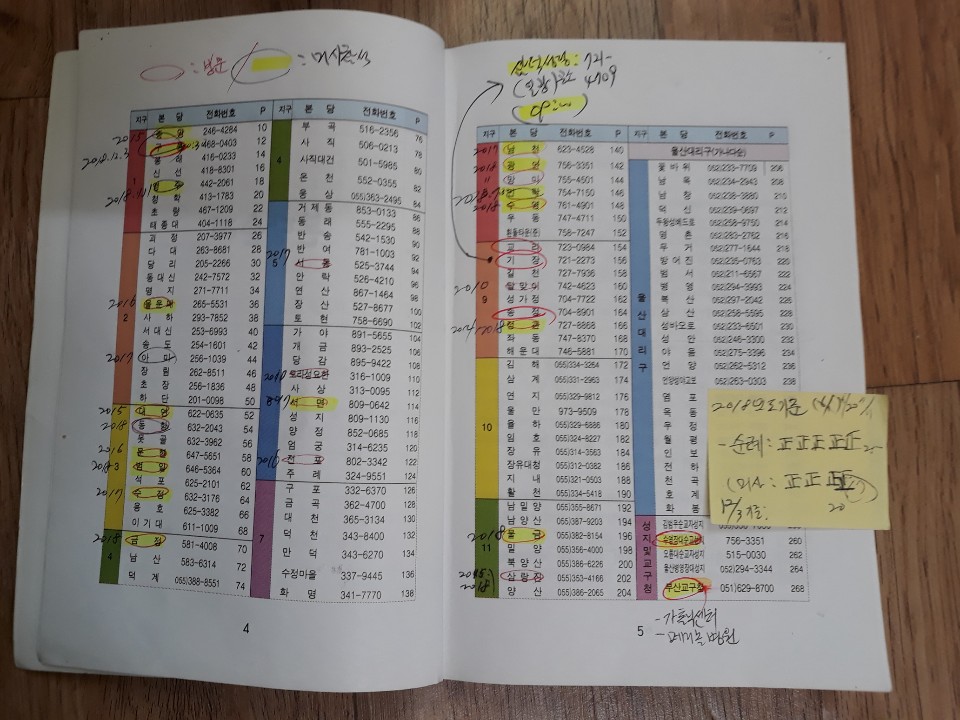 : 방문 : 미사참석
지구 본 당 전화번호 P
중 앙 246-4284 10
468-0403 12
봉 래 416-0233 14
신 선 418-8301 16
442-2061 18
청 학 413-1783 20
초 량 467-1209 22
태종대 404-1118 24
1
괴 정 207-3977 26
다 대 263-8681 28
당 리 205-2266 30
동대신 242-7572 32
명 지 271-7711 34
2016 몰운대 265-5531 36
사 하 293-7852 38
서대신 253-6993 40
송 도 254-1601 42
2017 아미 256-1039 44
장 림 262-8511 46
초 장 256-1836 48
하 단 201-0098 50
2
2015 대 연 622-0635 52
2018 동 항 632-2043 54
못 골 632-3962 56
2016 문 현 647-5651 58
2018-3 범 일 646-5364 60
석 포 625-2101 62
2017 수 정 632-3176 64
용 호 625-3382 66
이기대 611-1009 68
3
2018 금 정 581-4008 70
남 산 583-6314 72
덕 계 055)388-8551 74
4
지구 본 당 전화번호 P
부 곡 516-2356 76
사 직 506-0213 78
사직대건 501-5985 80
온 천 552-0355 82
웅 상 (055)363-2495 84
4
거제동 853-0133 86
동 래 555-2295 88
반 송 542-1530 90
반 여 781-1003 92
2017 서 동 525-3744 94
안 락 526-4210 96
연 산 867-1464 98
장 산 527-8677 100
토 현 758-6690 102
5
가 야 891-5655 104
개 금 893-2525 106
당 감 895-9422 108
2010 트리성요한 316-1009 110
사 상 313-0095 112
서 면 809-0642 114
성 지 809-1130 116
양 정 852-0685 118
엄 궁 314-6235 120
2010 전 포 802-3342 122
주 례 324-9551 124
구 포 332-6370 126
금 곡 362-4700 128
대 천 365-3134 130
덕 천 343-8400 132
만 덕 343-6270 134
수정마을 337-9445 136
화 명 341-7770 138
7
4
4709
지구 본 당 전화번호 P
2017 남 천 523-4528 140
2018 광 안 756-3351 142
" 망 미 755-4501 144
754-7150 146
2018 수 영 761-4901 148
우 동 747-4711 150
758-7247 152
교 리 723-0984 154
기 장 721-2273 156
길 천 727-7936 158
2010 달맞이 742-4623 160
성가정 704-7722 162
송 정 704-8901 164
2014/2018 정 관 727-8868 166
좌 동 747-8370 168
해운대 746-5881 170
9
김 해 055)334-3264 172
삼 계 055)331-2963 174
연 지 055)329-9812 176
율 하 055)329-6886 180
임 호 055)324-8227 182
장 유 055)314-3563 184
장유대청 055)312-0382 186
지 내 055)331-0503 188
활 천 055)334-5418 190
10
남밀양 055)355-8671 192
남양산 055)387-9203 194
2018 물 금 055)382-8154 196
밀 양 055)356-4000 198
북양산 055)386-6226 200
삼랑진 055)353-4166 202
양 산 055)386-2065 204
11
본 당 전화번호 P
울산대리구(가나다순)
꽃바위 052)233-7709 206
남 목 052)234-2943 208
남 창 052)238-3880 210
덕 신 052)239-0697 212
두왕성베드로 052)258-9750 214
명 촌 052)283-2762 216
무 거 052)277-1644 218
방어진 052)235-0763 220
범 서 052)211-6567 222
병 영 052)294-3993 224
복 산 052)297-2042 226
삼 산 052)258-5595 228
성바오로 052)233-6501 230
성 안 052)246-3300 232
야 음 052)275-3394 234
언 양 052)262-5312 236
언양성데레오 052)263-0303 238
염 포
옥 동
우 정
월 평
인 보
전 하
천 곡
호 계
화 봉
울산대리구
2018년도기준
- 순례: 正正正正正
(미사: 正正正
20
성지및교구청
수영장대순교성지 756-3351 260
오륜대순교자성지 515-0030 262
울산병영장대성지 052)294-3344 264
부산교구청 051)629-8700 268
- 가톨릭센터
- 메리놀병원
5